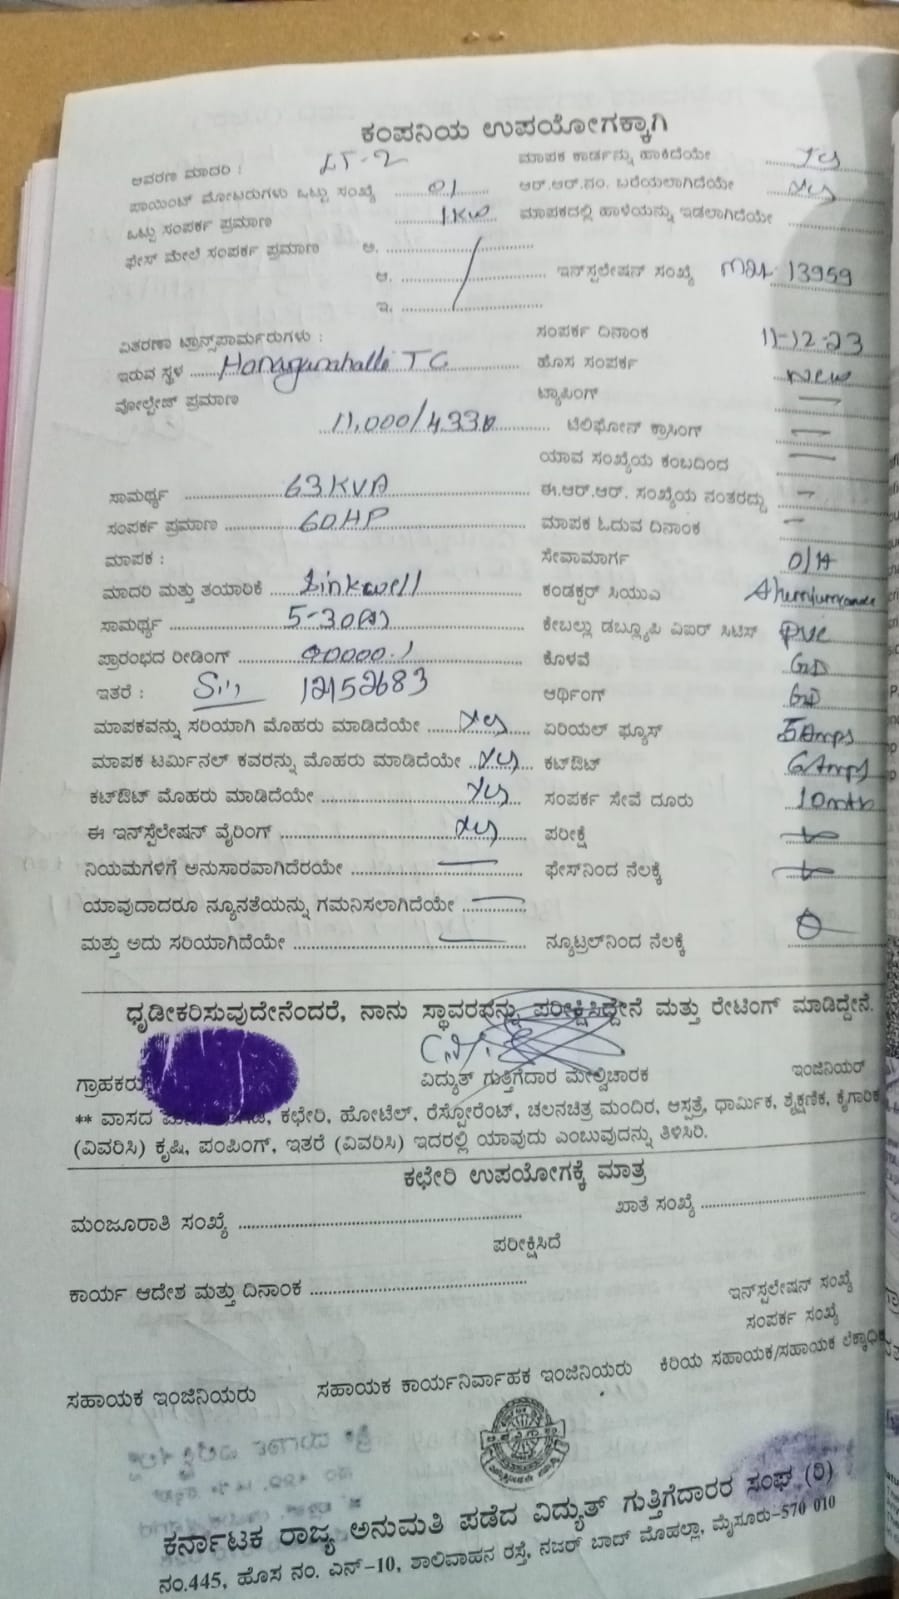 ಕಂಪನಿಯ ಉಪಯೋಗಕ್ಕಾಗಿ
ಆವರಣ ಮಾದರಿ : LT-2 ಮಾಪಕ ಕಾರ್ಡನ್ನು ಹಾಕಿದೆಯೇ Yes
ಪಾಯಿಂಟ್ ಮೋಟರುಗಳು ಒಟ್ಟು ಸಂಖ್ಯೆ 01 ಆರ್.ಆರ್.ನಂ. ಬರೆಯಲಾಗಿದೆಯೇ Yes
ಒಟ್ಟು ಸಂಪರ್ಕ ಪ್ರಮಾಣ 1KW ಮಾಪಕದಲ್ಲಿ ಹಾಳೆಯನ್ನು ಇಡಲಾಗಿದೆಯೇ
ಫೇಸ್ ಮೇಲೆ ಸಂಪರ್ಕ ಪ್ರಮಾಣ ಅ.
ಆ. ಇನ್‌ಸ್ಪಲೇಷನ್ ಸಂಖ್ಯೆ 13959
ಇ.
ವಿತರಣಾ ಟ್ರಾನ್ಸ್‌ಪಾರ್ಮರುಗಳು : ಸಂಪರ್ಕ ದಿನಾಂಕ 11-12-23
ಇರುವ ಸ್ಥಳ TC ಹೊಸ ಸಂಪರ್ಕ New
ವೋಲ್ಟೇಜ್ ಪ್ರಮಾಣ ಟ್ಯಾಪಿಂಗ್ —
11,000/433 ಟೆಲಿಫೋನ್ ಕ್ರಾಸಿಂಗ್ —
ಯಾವ ಸಂಖ್ಯೆಯ ಕಂಬದಿಂದ —
ಸಾಮರ್ಥ್ಯ 63KVA ಈ.ಆರ್.ಆರ್. ಸಂಖ್ಯೆಯ ನಂತರದ್ದು —
ಸಂಪರ್ಕ ಪ್ರಮಾಣ 60HP ಮಾಪಕ ಓದುವ ದಿನಾಂಕ —
ಮಾಪಕ : ಸೇವಾಮಾರ್ಗ O/H
ಮಾದರಿ ಮತ್ತು ತಯಾರಿಕೆ Linkwell ಕಂಡಕ್ಟರ್ ಸಿಯುಎ
ಸಾಮರ್ಥ್ಯ 5-30(A) ಕೇಬಲ್ಲು ಡಬ್ಲ್ಯೂಪಿ ವಿಐಆರ್ ಸಿಟಿಸ್ PVC
ಪ್ರಾರಂಭದ ರೀಡಿಂಗ್ 00000.1 ಕೊಳವೆ GD
ಇತರೆ : 12152683 ಆರ್ಥಿಂಗ್ GD
ಮಾಪಕವನ್ನು ಸರಿಯಾಗಿ ಮೊಹರು ಮಾಡಿದೆಯೇ Yes ಏರಿಯಲ್ ಫ್ಯೂಸ್ 5Amps
ಮಾಪಕ ಟರ್ಮಿನಲ್ ಕವರನ್ನು ಮೊಹರು ಮಾಡಿದೆಯೇ Yes ಕಟ್‌ಔಟ್ 6Amps
ಕಟ್‌ಔಟ್ ಮೊಹರು ಮಾಡಿದೆಯೇ Yes ಸಂಪರ್ಕ ಸೇವೆ ದೂರು
ಈ ಇನ್‌ಸ್ಪೆಲೇಷನ್ ವೈರಿಂಗ್ Yes ಪರೀಕ್ಷೆ
ನಿಯಮಗಳಿಗೆ ಅನುಸಾರವಾಗಿದೆರಯೇ — ಫೇಸ್‌ನಿಂದ ನೆಲಕ್ಕೆ
ಯಾವುದಾದರೂ ನ್ಯೂನತೆಯನ್ನು ಗಮನಿಸಲಾಗಿದೆಯೇ —
ಮತ್ತು ಅದು ಸರಿಯಾಗಿದೆಯೇ — ನ್ಯೂಟ್ರಲ್‌ನಿಂದ ನೆಲಕ್ಕೆ
ಧೃಡೀಕರಿಸುವುದೇನೆಂದರೆ, ನಾನು ಸ್ಥಾವರವನ್ನು ಪರೀಕ್ಷಿಸಿದ್ದೇನೆ ಮತ್ತು ರೇಟಿಂಗ್ ಮಾಡಿದ್ದೇನೆ.
ಗ್ರಾಹಕರು ವಿದ್ಯುತ್ ಗುತ್ತಿಗೆದಾರ ಮೇಲ್ವಿಚಾರಕ ಇಂಜಿನಿಯರ್
** ವಾಸದ ಕಛೇರಿ, ಹೋಟೆಲ್, ರೆಸ್ಟೋರೆಂಟ್, ಚಲನಚಿತ್ರ ಮಂದಿರ, ಆಸ್ಪತ್ರೆ, ಧಾರ್ಮಿಕ, ಶೈಕ್ಷಣಿಕ, ಕೈಗಾರಿಕ
(ವಿವರಿಸಿ) ಕೃಷಿ, ಪಂಪಿಂಗ್, ಇತರೆ (ವಿವರಿಸಿ) ಇದರಲ್ಲಿ ಯಾವುದು ಎಂಬುವುದನ್ನು ತಿಳಿಸಿರಿ.
ಕಛೇರಿ ಉಪಯೋಗಕ್ಕೆ ಮಾತ್ರ
ಮಂಜೂರಾತಿ ಸಂಖ್ಯೆ ಖಾತೆ ಸಂಖ್ಯೆ
ಪರೀಕ್ಷಿಸಿದೆ
ಕಾರ್ಯ ಆದೇಶ ಮತ್ತು ದಿನಾಂಕ
ಇನ್‌ಸ್ಪಲೇಷನ್ ಸಂಖ್ಯೆ
ಸಂಪರ್ಕ ಸಂಖ್ಯೆ
ಸಹಾಯಕ ಇಂಜಿನಿಯರು ಸಹಾಯಕ ಕಾರ್ಯನಿರ್ವಾಹಕ ಇಂಜಿನಿಯರು ಕಿರಿಯ ಸಹಾಯಕ/ಸಹಾಯಕ ಲೆಕ್ಕಾಧಿ
ಕರ್ನಾಟಕ ರಾಜ್ಯ ಅನುಮತಿ ಪಡೆದ ವಿದ್ಯುತ್ ಗುತ್ತಿಗೆದಾರರ ಸಂಘ (ರಿ)
ನಂ.445, ಹೊಸ ನಂ. ಎನ್-10, ಶಾಲಿವಾಹನ ರಸ್ತೆ, ನಜರ್ ಬಾದ್ ಮೊಹಲ್ಲಾ, ಮೈಸೂರು-570 010